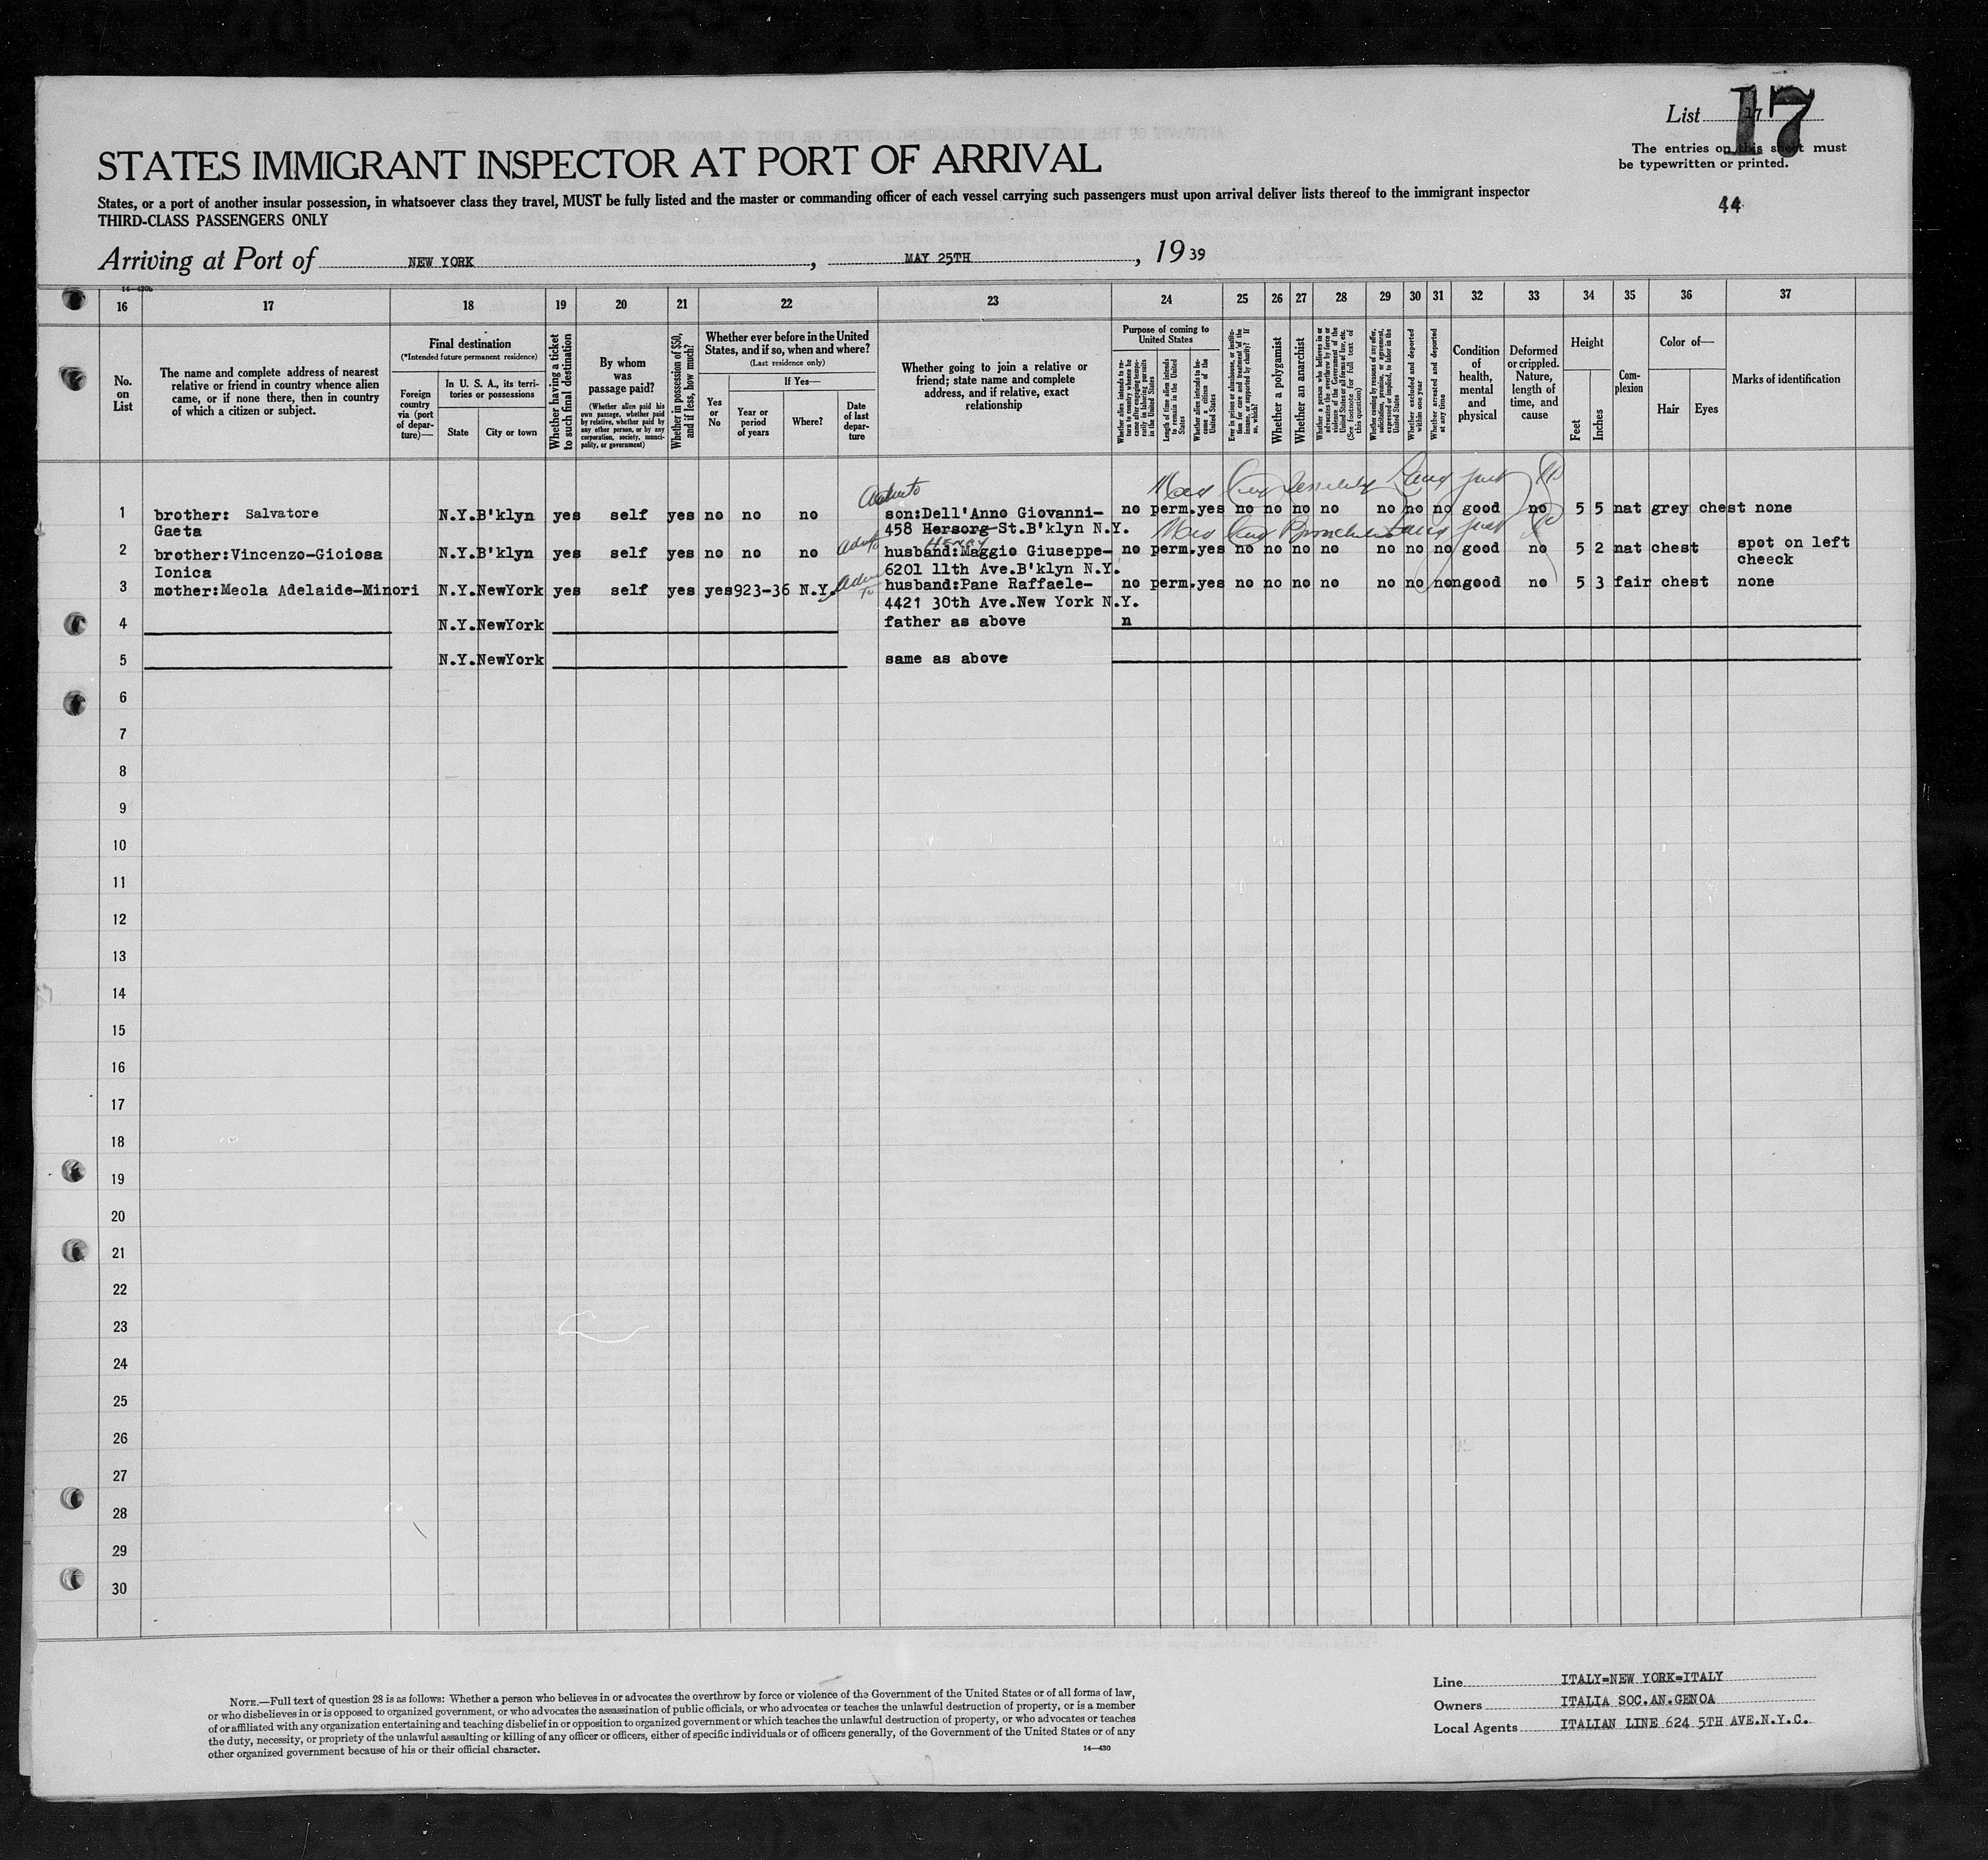 List 17
17
The entries on this sheet must
be typewritten or printed.
44
STATES IMMIGRANT INSPECTOR AT PORT OF ARRIVAL
States, or a port of another insular possession, in whatsoever class they travel, MUST be fully listed and the master or commanding officer of each vessel carrying such passengers must upon arrival deliver lists thereof to the immigrant inspector
THIRD-CLASS PASSENGERS ONLY
Arriving at Port of NEW YORK, MAY 25TH, 1939
14—430b
16 17 18 19 20 21 22 23 24 25 26 27 28 29 30 31 32 33 34 35 36 37
No. on List
The name and complete address of nearest relative or friend in country whence alien came, or if none there, then in country of which a citizen or subject.
Final destination
(*Intended future permanent residence)
Foreign country via (port of departure)—
In U. S. A., its territories or possessions
State
City or town
Whether having a ticket to such final destination
By whom was passage paid?
(Whether alien paid his own passage, whether paid by relative, whether paid by any other person, or by any corporation, society, municipality, or government)
Whether in possession of $50, and if less, how much?
Whether ever before in the United States, and if so, when and where?
(Last residence only)
Yes or No
If Yes—
Year or period of years
Where?
Date of last departure
Whether going to join a relative or friend; state name and complete address, and if relative, exact relationship
Purpose of coming to United States
Whether alien intends to return to country whence he came after engaging temporarily in laboring pursuits in the United States
Length of time alien intends to remain in the United States
Whether alien intends to become a citizen of the United States
Ever in prison or almshouse, or institution for care and treatment of the insane, or supported by charity? If so, which?
Whether a polygamist
Whether an anarchist
Whether a person who believes in or advocates the overthrow by force or violence of the Government of the United States or all forms of law, etc. (See footnote for full text of this question)
Whether coming by reason of any offer, solicitation, promise, or agreement, express or implied, to labor in the United States
Whether excluded and deported within one year
Whether arrested and deported at any time
Condition of health, mental and physical
Deformed or crippled. Nature, length of time, and cause
Height
Feet
Inches
Complexion
Color of—
Hair
Eyes
Marks of identification
1 brother: Salvatore N.Y. B'klyn yes self yes no no no son:Dell'Anno Giovanni- no perm. yes no no no no no no no good no 5 5 nat grey chest none
Gaeta 458 Hersorg St.B'klyn N.Y.
Henry
2 brother:Vincenzo-Gioiosa N.Y. B'klyn yes self yes no no no husband:Maggio Giuseppe- no perm. yes no no no no no no no good no 5 2 nat chest spot on left
Ionica 6201 11th Ave.B'klyn N.Y. cheeck
3 mother:Meola Adelaide-Minori N.Y. NewYork yes self yes yes 923-36 N.Y. husband:Pane Raffaele- no perm. yes no no no no no no non good no 5 3 fair chest none
4421 30th Ave.New York N.Y.
4 N.Y. NewYork father as above n
5 N.Y. NewYork same as above
6
7
8
9
10
11
12
13
14
15
16
17
18
19
20
21
22
23
24
25
26
27
28
29
30
NOTE.—Full text of question 28 is as follows: Whether a person who believes in or advocates the overthrow by force or violence of the Government of the United States or of all forms of law,
or who disbelieves in or is opposed to organized government, or who advocates the assassination of public officials, or who advocates or teaches the unlawful destruction of property, or is a member
of or affiliated with any organization entertaining and teaching disbelief in or opposition to organized government or which teaches the unlawful destruction of property, or who advocates or teaches
the duty, necessity, or propriety of the unlawful assaulting or killing of any officer or officers, either of specific individuals or of officers generally, of the Government of the United States or of any
other organized government because of his or their official character.
14—430
Line ITALY=NEW YORK=ITALY
Owners ITALIA SOC.AN.GENOA
Local Agents ITALIAN LINE 624 5TH AVE.N.Y.C.